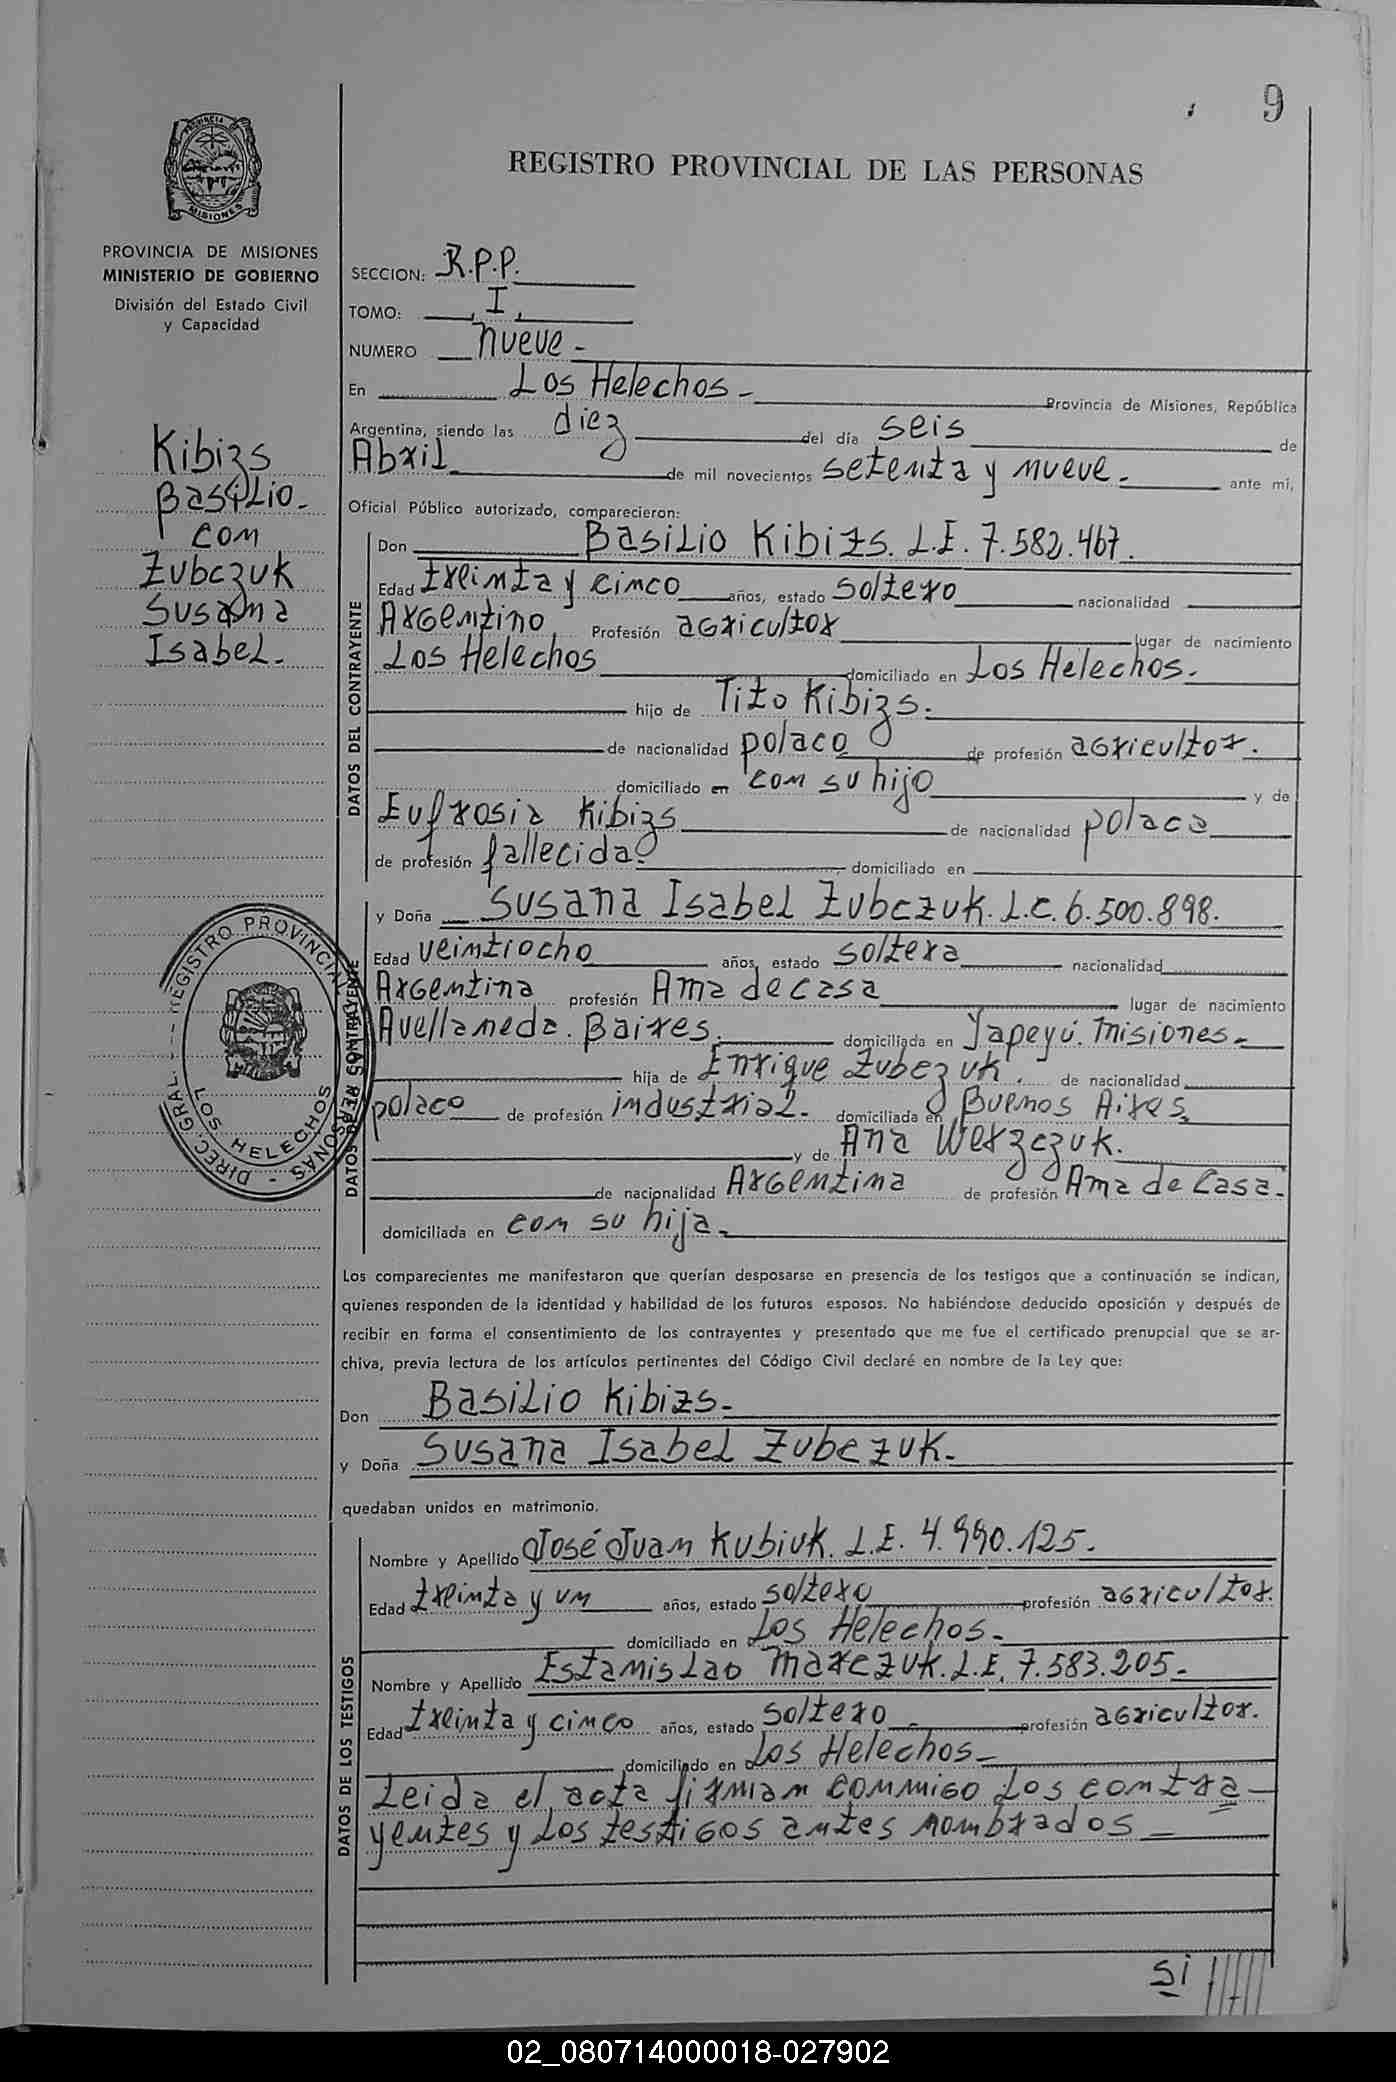 9
REGISTRO PROVINCIAL DE LAS PERSONAS
PROVINCIA DE MISIONES
MISIONES
PROVINCIA DE MISIONES
MINISTERIO DE GOBIERNO
División del Estado Civil
y Capacidad
Kibizs
Basilio.
con
Zubczuk
Susana
Isabel.
SECCION: R.P.P.
TOMO: I
NUMERO nueve -
En Los Helechos - Provincia de Misiones, República
Argentina, siendo las diez del día seis de
Abril de mil novecientos setenta y nueve. ante mi,
Oficial Público autorizado, comparecieron:
DATOS DEL CONTRAYENTE
Don Basilio Kibizs. L.E. 7.582.467.
Edad treinta y cinco años, estado soltero nacionalidad
Argentino Profesión agricultor lugar de nacimiento
Los Helechos domiciliado en Los Helechos.
hijo de Tito Kibizs.
de nacionalidad polaco de profesión agricultor.
domiciliado en con su hijo y de
Eufrosia Kibizs de nacionalidad polaca
de profesión fallecida. domiciliado en
DATOS DE LA CONTRAYENTE
y Doña Susana Isabel Zubczuk. L.C. 6.500.898.
Edad veintiocho años, estado soltera nacionalidad
Argentina profesión Ama de casa lugar de nacimiento
Avellaneda. Baires. domiciliada en Yapeyú. Misiones.
hija de Enrique Zubczuk. de nacionalidad
polaco de profesión industrial. domiciliada en Buenos Aires
y de Ana Werzczuk.
de nacionalidad Argentina de profesión Ama de Casa.
domiciliada en con su hija.
DIREC. GRAL. REGISTRO PROVINCIAL PERSONAS
LOS HELECHOS
Los comparecientes me manifestaron que querían desposarse en presencia de los testigos que a continuación se indican,
quienes responden de la identidad y habilidad de los futuros esposos. No habiéndose deducido oposición y después de
recibir en forma el consentimiento de los contrayentes y presentado que me fue el certificado prenupcial que se ar-
chiva, previa lectura de los artículos pertinentes del Código Civil declaré en nombre de la Ley que:
Don Basilio Kibizs.
y Doña Susana Isabel Zubczuk.
quedaban unidos en matrimonio.
DATOS DE LOS TESTIGOS
Nombre y Apellido José Juan Kubiuk. L.E. 4.990.125.
Edad treinta y un años, estado soltero profesión agricultor.
domiciliado en Los Helechos.
Nombre y Apellido Estanislao Marczuk. L.E. 7.583.205.
Edad treinta y cinco años, estado soltero profesión agricultor.
domiciliado en Los Helechos
Leida el acta firman conmigo los contra-
yentes y los testigos antes nombrados
si
02_080714000018-027902